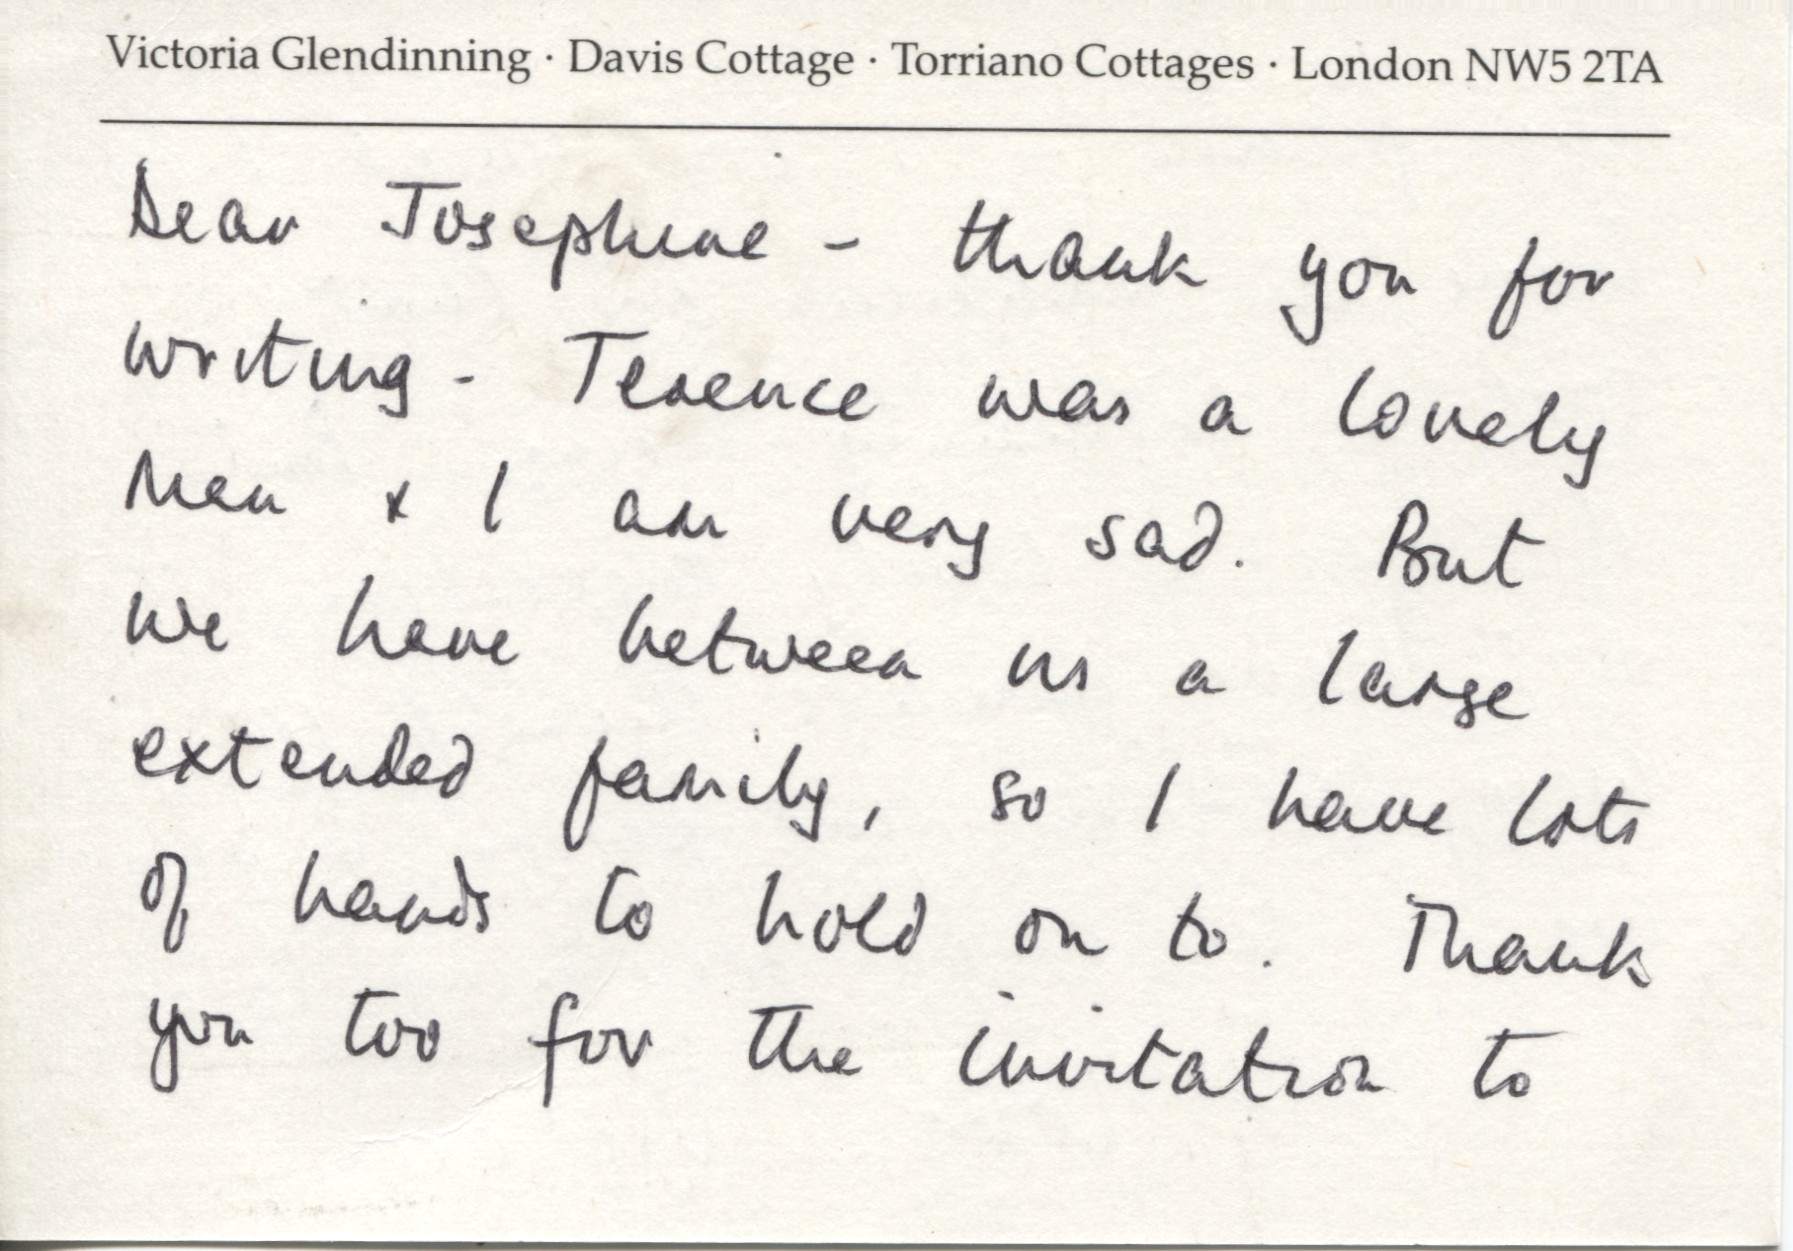 Victoria Glendinning · Davis Cottage · Torriano Cottages · London NW5 2TA
Dear Josephine – thank you for
writing - Terence was a lovely
man & I am very sad. But
we have between us a large
extended family, so I have lots
of hands to hold on to. Thank
you too for the invitation to